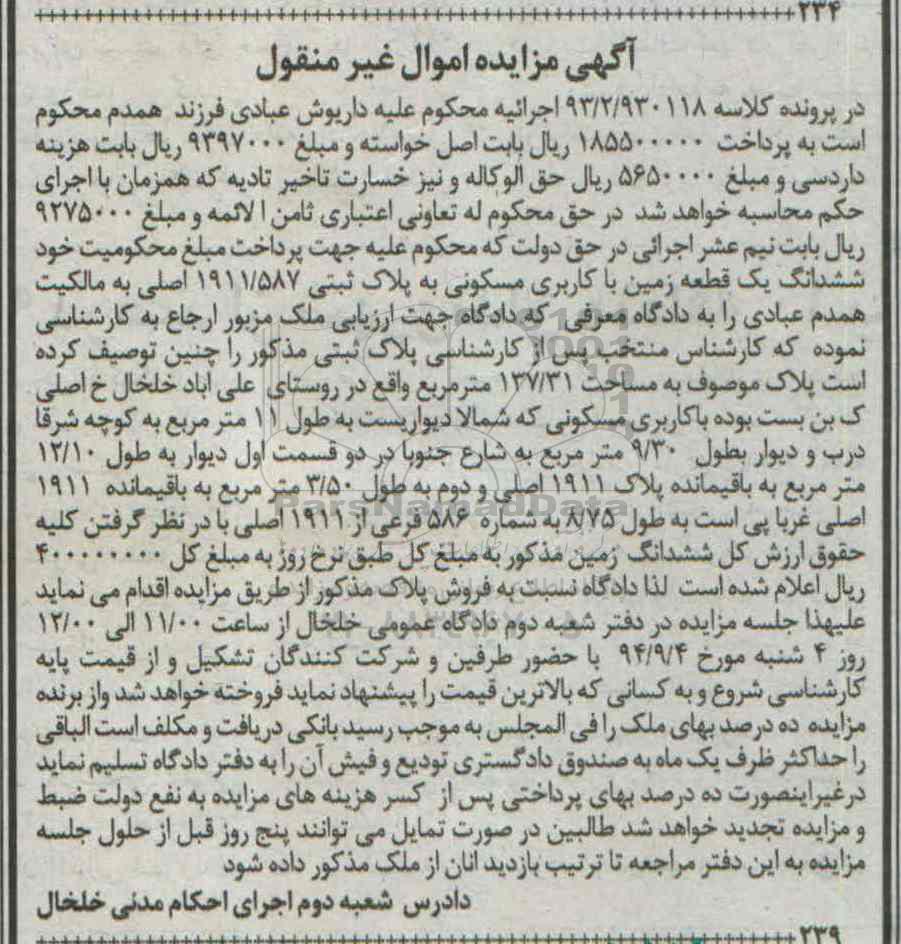 ۲۳۴
آگهی مزایده اموال غیر منقول
در پرونده کلاسه ۹۳/۲/۹۳۰۱۱۸ اجرائیه محکوم علیه داریوش عبادی فرزند همدم محکوم
است به پرداخت ۱۸۵۵۰۰۰۰۰ ریال بابت اصل خواسته و مبلغ ۹۳۹۷۰۰۰ ریال بابت هزینه
داردسی و مبلغ ۵۶۵۰۰۰۰ ریال حق الوکاله و نیز خسارت تاخیر تادیه که همزمان با اجرای
حکم محاسبه خواهد شد در حق محکوم له تعاونی اعتباری ثامن ا لائمه و مبلغ ۹۲۷۵۰۰۰
ریال بابت نیم عشر اجرائی در حق دولت که محکوم علیه جهت پرداخت مبلغ محکومیت خود
ششدانگ یک قطعه زمین با کاربری مسکونی به پلاک ثبتی ۱۹۱۱/۵۸۷ اصلی به مالکیت
همدم عبادی را به دادگاه معرفی که دادگاه جهت ارزیابی ملک مزبور ارجاع به کارشناسی
نموده که کارشناس منتخب پس از کارشناسی پلاک ثبتی مذکور را چنین توصیف کرده
است پلاک موصوف به مساحت ۱۳۷/۳۱ مترمربع واقع در روستای علی اباد خلخال خ اصلی
ک بن بست بوده باکاربری مسکونی که شمالا دیواریست به طول ۱۱ متر مربع به کوچه شرقا
درب و دیوار بطول ۹/۳۰ متر مربع به شارع جنوبا در دو قسمت اول دیوار به طول ۱۲/۱۰
متر مربع به باقیمانده پلاک ۱۹۱۱ اصلی و دوم به طول ۳/۵۰ متر مربع به باقیمانده ۱۹۱۱
اصلی غربا پی است به طول ۸/۷۵ به شماره ۵۸۶ فرعی از ۱۹۱۱ اصلی با در نظر گرفتن کلیه
حقوق ارزش کل ششدانگ زمین مذکور به مبلغ کل طبق نرخ روز به مبلغ کل ۴۰۰۰۰۰۰۰۰
ریال اعلام شده است لذا دادگاه نسبت به فروش پلاک مذکور از طریق مزایده اقدام می نماید
علیهذا جلسه مزایده در دفتر شعبه دوم دادگاه عمومی خلخال از ساعت ۱۱/۰۰ الی ۱۲/۰۰
روز ۴ شنبه مورخ ۹۴/۹/۴ با حضور طرفین و شرکت کنندگان تشکیل و از قیمت پایه
کارشناسی شروع و به کسانی که بالاترین قیمت را پیشنهاد نماید فروخته خواهد شد واز برنده
مزایده ده درصد بهای ملک را فی المجلس به موجب رسید بانکی دریافت و مکلف است الباقی
را حداکثر ظرف یک ماه به صندوق دادگستری تودیع و فیش آن را به دفتر دادگاه تسلیم نماید
درغیراینصورت ده درصد بهای پرداختی پس از کسر هزینه های مزایده به نفع دولت ضبط
و مزایده تجدید خواهد شد طالبین در صورت تمایل می توانند پنج روز قبل از حلول جلسه
مزایده به این دفتر مراجعه تا ترتیب بازدید انان از ملک مذکور داده شود
دادرس شعبه دوم اجرای احکام مدنی خلخال
۲۳۹
ParsNamadData